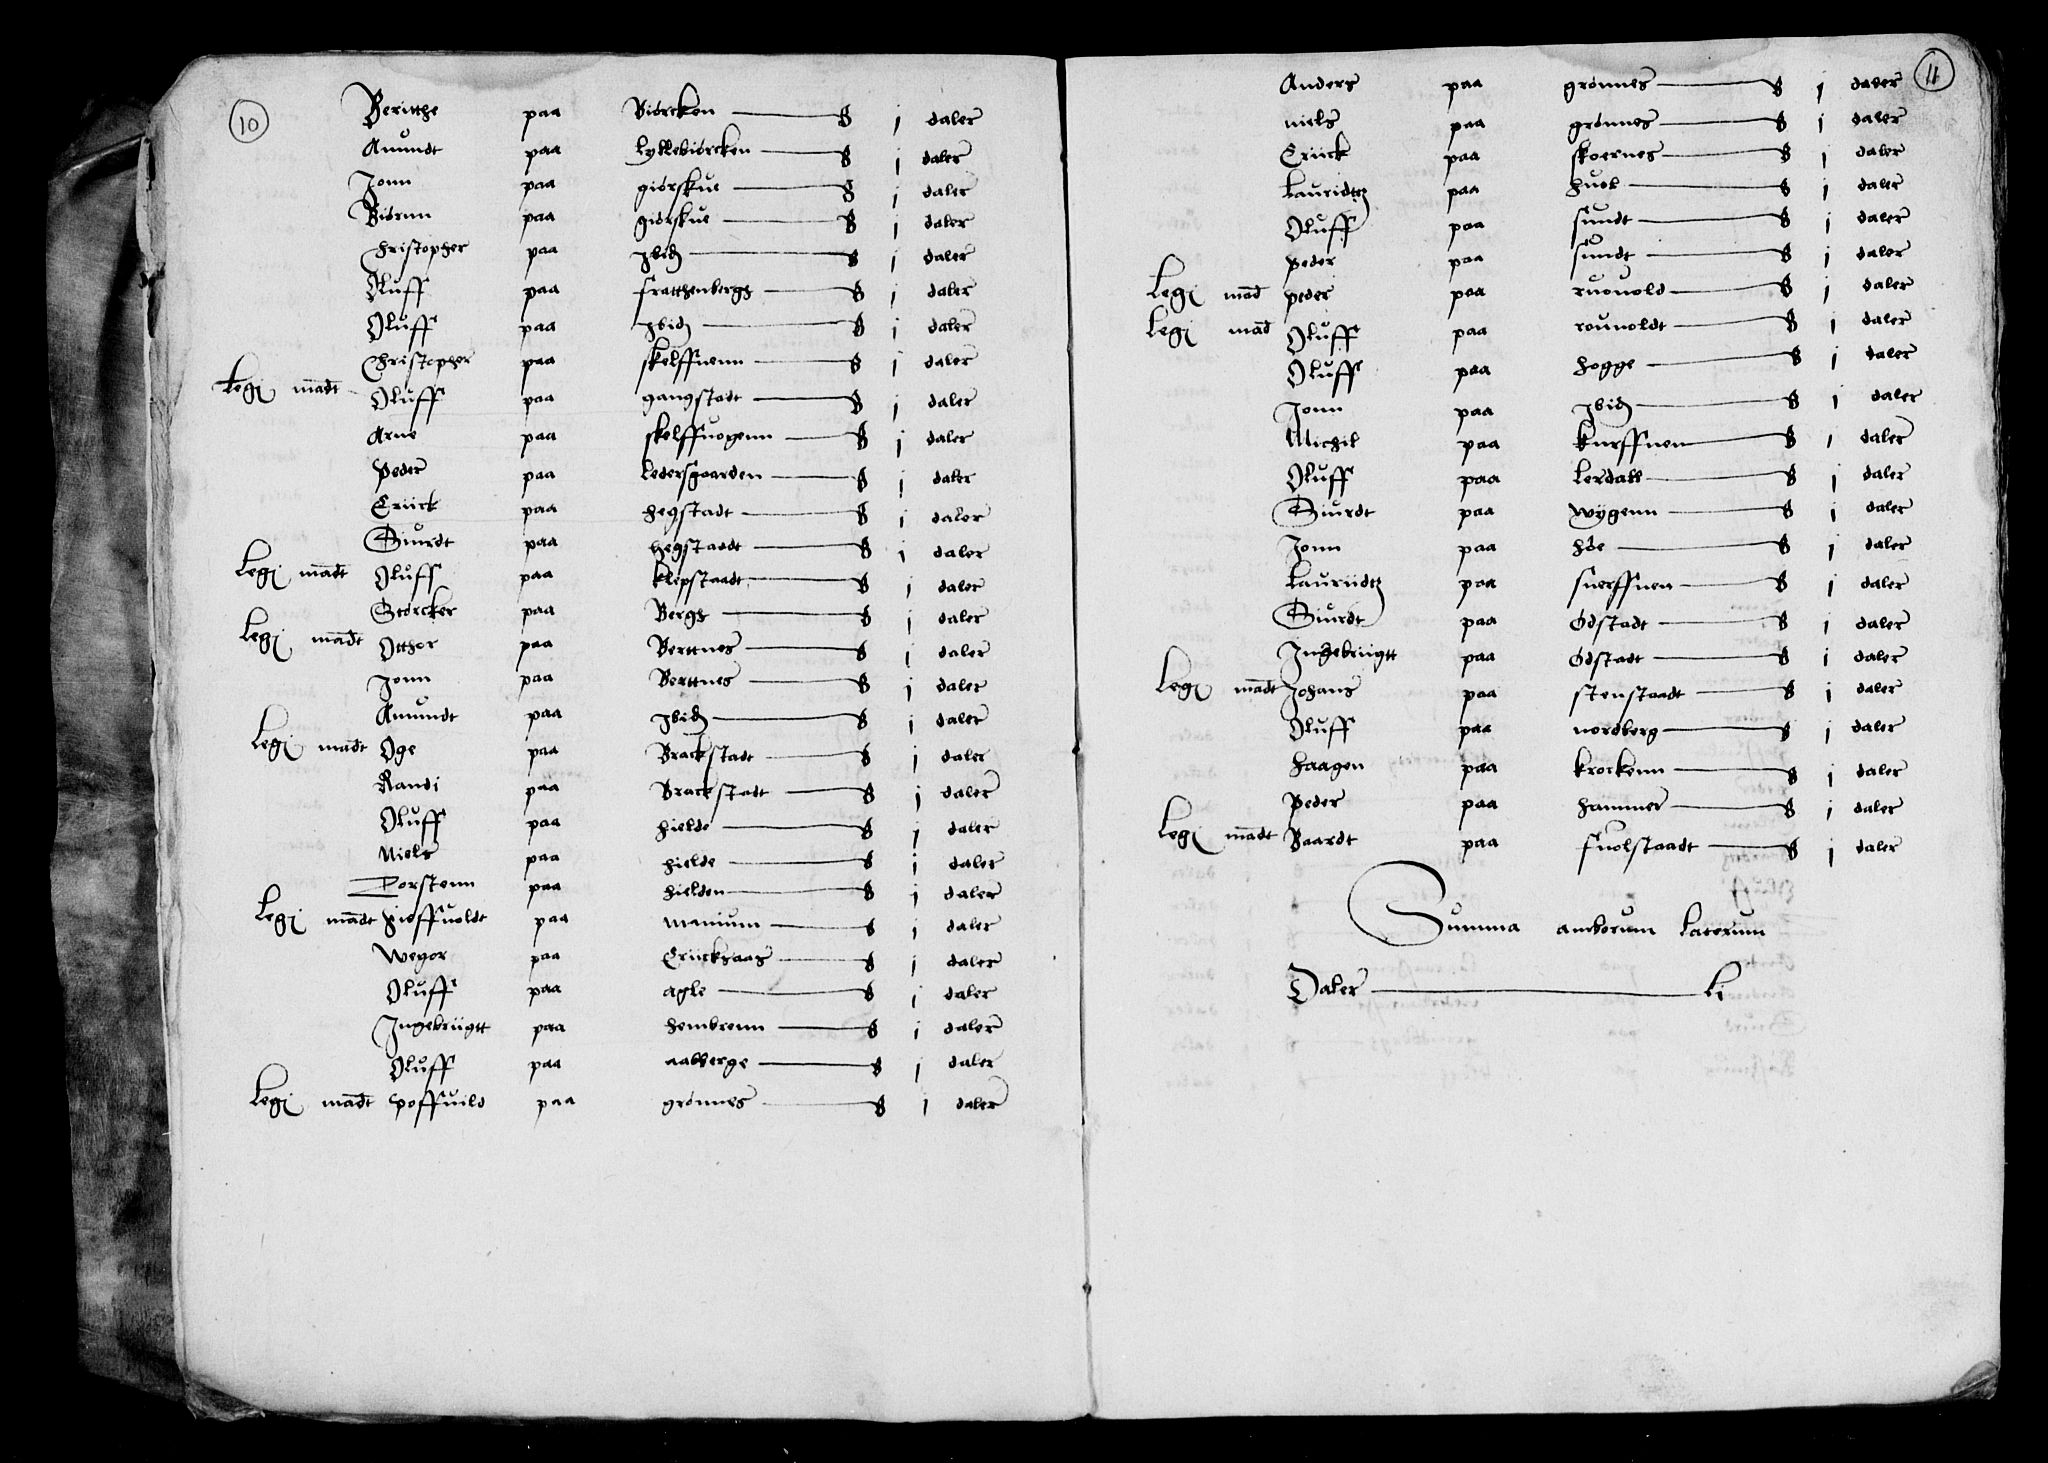 10
Beritthe paa Biörcken — ß j daler
Amundt paa Lyllebiörcken — ß j daler
Jonn paa giörskue — ß j daler
Biörnn paa giörskue — ß j daler
Christopher paa Jbid — ß j daler
Oluff paa fratthenbergh — ß j daler
Oluff paa Jbid — ß j daler
Christopher paa skelffuenn — ß j daler
Legj mādt Oluff paa gangstadt — ß j daler
Arne paa skelffuogenn — ß j daler
Peder paa Ledersgaarden — ß j daler
Eriick paa hegstadt — ß j daler
Siurdt paa hegstaadt — ß j daler
Legj mādt Oluff paa klepstaadt — ß j daler
Störcker paa Bergh — ß j daler
Legj mādt Otthor paa Berttnes — ß j daler
Jonn paa Berttnes — ß j daler
Amundt paa Jbid — ß j daler
Legj mādt Oge paa Brackstadt — ß j daler
Randi paa Brackstadt — ß j daler
Oluff paa hielde — ß j daler
Niels paa hielde — ß j daler
Torstenn paa hielden — ß j daler
Legj mādt hioffuoldt paa manium — ß j daler
Wegor paa Eriickhaas — ß j daler
Oluff paa agle — ß j daler
Jngebriigtt paa hembrenn — ß j daler
Oluff paa aalberge — ß j daler
Legj mādt poffuild paa grönnes — ß j daler
11
Anders paa grönnes — ß j daler
niels paa grönnes — ß j daler
Eriick paa skoernes — ß j daler
Lauridtz paa huol — ß j daler
Oluff paa sundt — ß j daler
Peder paa sundt — ß j daler
Legj mād peder paa ruouold — ß j daler
Legj mād Oluff paa rouuoldt — ß j daler
Oluff paa hogge — ß j daler
Jonn paa Jbid — ß j daler
Michil paa kurffuen — ß j daler
Oluff paa Lerdall — ß j daler
Siurdt paa wÿgenn — ß j daler
Jonn paa höe — ß j daler
Lauriidtz paa suerffuen — ß j daler
Siurdt paaÖdstadt — ß j daler
Jngebriigtt paa Ödstadt — ß j daler
Legj mādt Johans paa stenstaadt — ß j daler
Oluff paa nordberg — ß j daler
haagen paa krockenn — ß j daler
Peder paa hammer — ß j daler
Legj mādt Baardt paa fuolstaadt — ß j daler
Summa amborum Laterum
Daler — Li